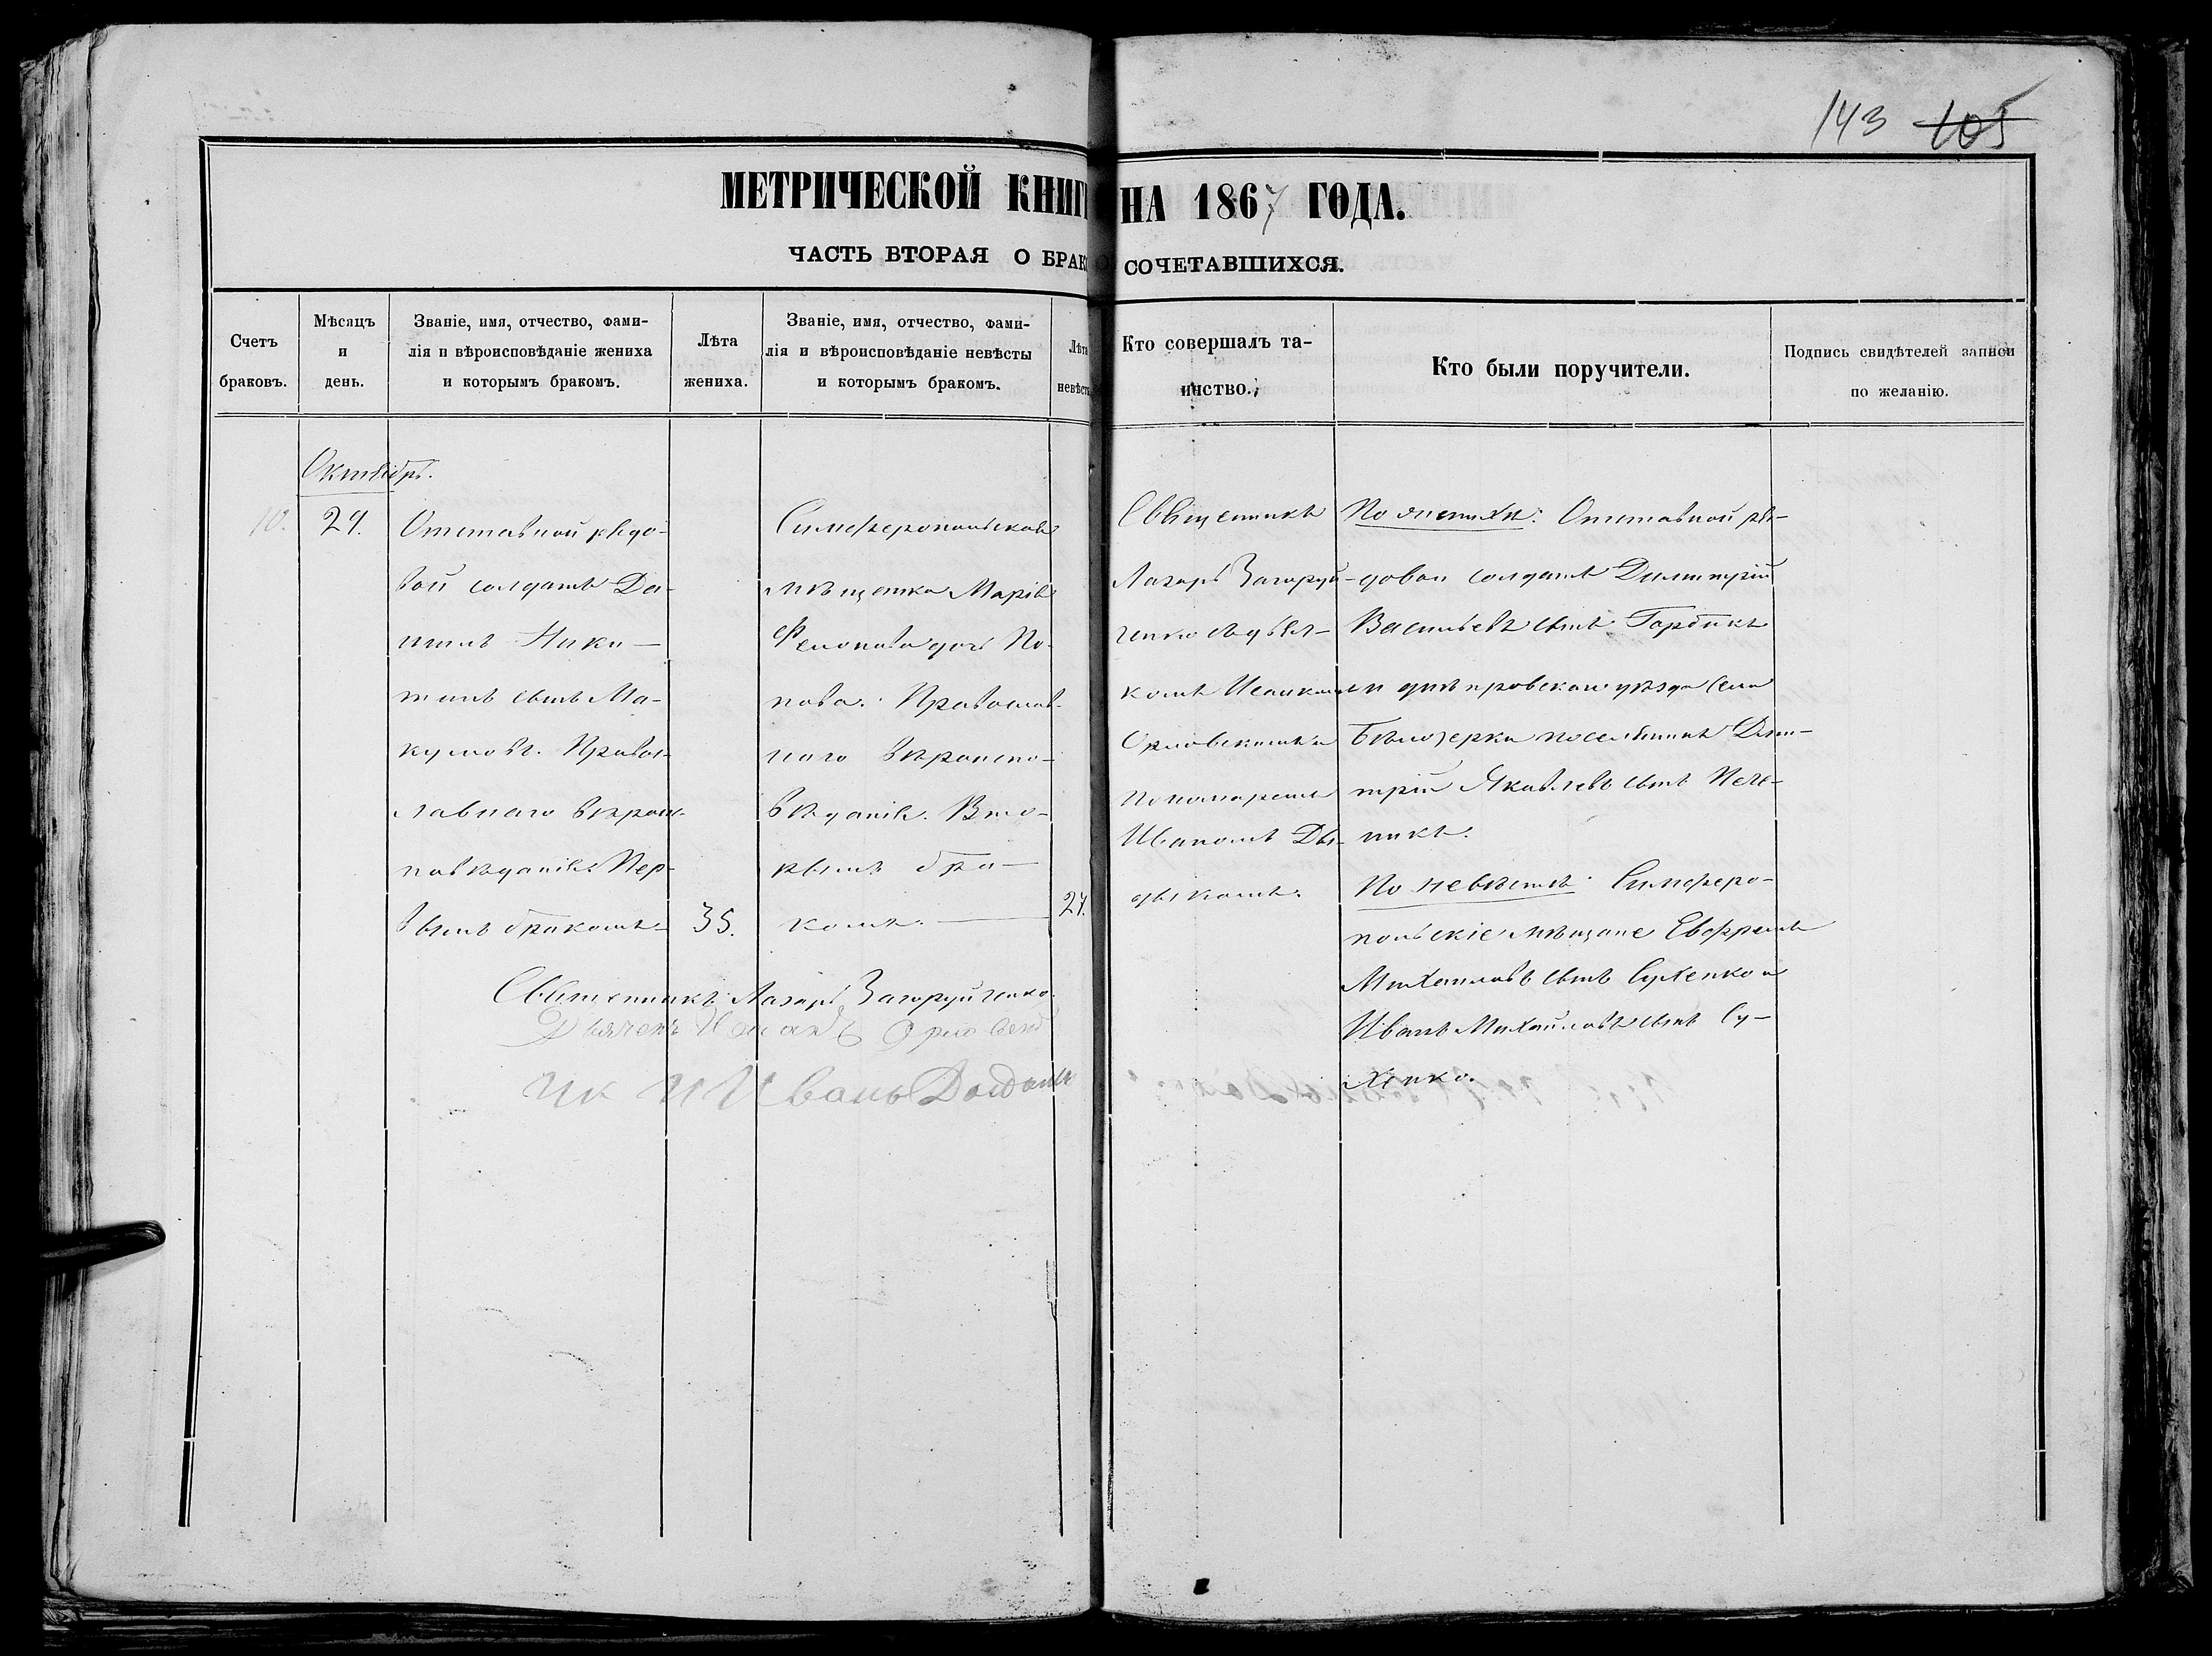 143 105
МЕТРИЧЕСКОЙ КНИГ НА 1867 ГОДА.
ЧАСТЬ ВТОРАЯ О БРАКО СОЧЕТАВШИХСЯ.
Счетъ
браковъ.
Мѣсяцъ
и
день.
Званіе, имя, отчество, фами-
лія и вѣроисповѣданіе жениха
и которымъ бракомъ.
Лѣта
жениха.
Званіе, имя, отчество, фами-
лія и вѣроисповѣданіе невѣсты
и которымъ бракомъ.
Лѣта
невѣсты
Кто совершалъ та-
инство.
Кто были поручители.
Подпись свидѣтелей записи
по желанію.
Октябрь.
10.
24.
Отставной рядо-
вой солдатъ Да-
ніилъ Ники-
тинъ сынъ Ма-
кумовъ. Правос-
лавнаго вѣрои-
повѣданія. Пер-
вымъ бракомъ
35.
Симферопольская
мѣщанка Марія
дочь По-
пова. Православ-
наго вѣроиспо-
вѣданія. Вто-
рымъ бра-
комъ.
24.
Священникъ
Лазарь Загоруй-
ченко съ дьяч-
комъ
Орловскимъ и
пономаремъ
Иваномъ Да-
По женихѣ: Отставной ря-
довой солдатъ Димитрій
Васильевъ сынъ
и днѣпровскаго уѣзда села
Бѣлозерки поселянинъ Дими-
трій Яковлевъ сынъ Пече-
никъ.
По невѣстѣ: Симферо-
польскіе мѣщане Ефремъ
Михайловъ сынъ Сухенко и
Иванъ Михайловъ сынъ Су-
хенко.
Священникъ Лазарь Загоруйченко.
Дьячекъ Орловскій
Иванъ